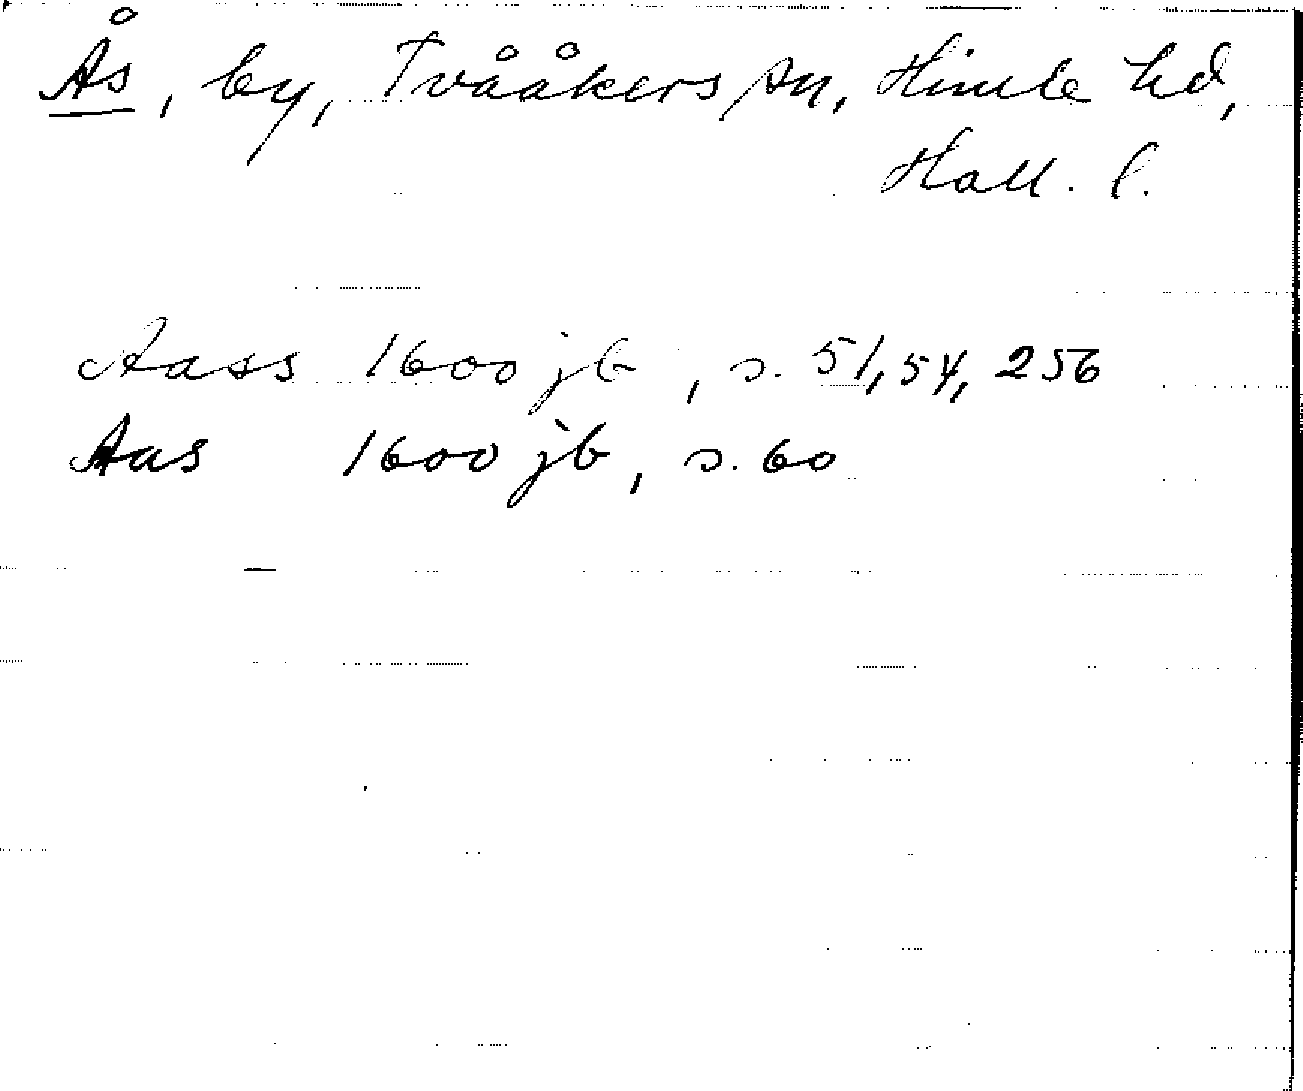 Ås, by, Tvååkers sn, Himle hd,
Hall. l.
Aass 1600 jb, s. 51, 54, 256
Aas 1600 jb, s. 60